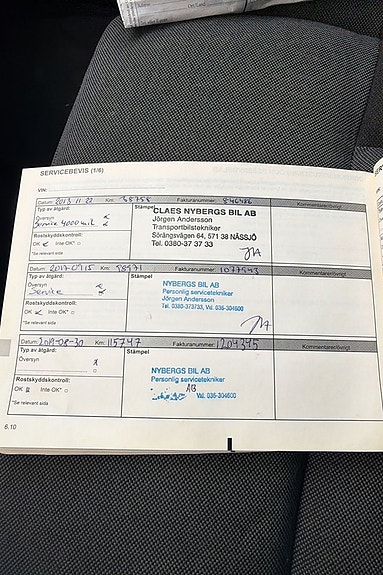 SERVICEBEVIS (1/6)
VIN:
Datum: 2013-11-22 Km: Fakturanummer:
Kommentarer/övrigt
Typ av åtgärd:
Översyn
Service 4000 mil
Rostskyddskontroll:
OK Inte OK*
*Se relevant sida
Stämpel
CLAES NYBERGS BIL AB
Jörgen Andersson
Transportbilstekniker
Sörängsvägen 64, 571 38 NÄSSJÖ
Tel. 0380-37 37 33
JA
Datum: Km: Fakturanummer: 1077543
Kommentarer/övrigt
Typ av åtgärd:
Översyn
Service
Rostskyddskontroll:
OK Inte OK*
*Se relevant sida
Stämpel
NYBERGS BIL AB
Personlig servicetekniker
Jörgen Andersson
Tel. 0380-373733, Vxl. 036-304600
JA
Datum: 2019-08-30 Km: 115747 Fakturanummer: 1204345
Kommentarer/övrigt
Typ av åtgärd:
Översyn
Rostskyddskontroll:
OK Inte OK*
*Se relevant sida
Stämpel
NYBERGS BIL AB
Personlig servicetekniker
Vxl. 036-304600
6.10